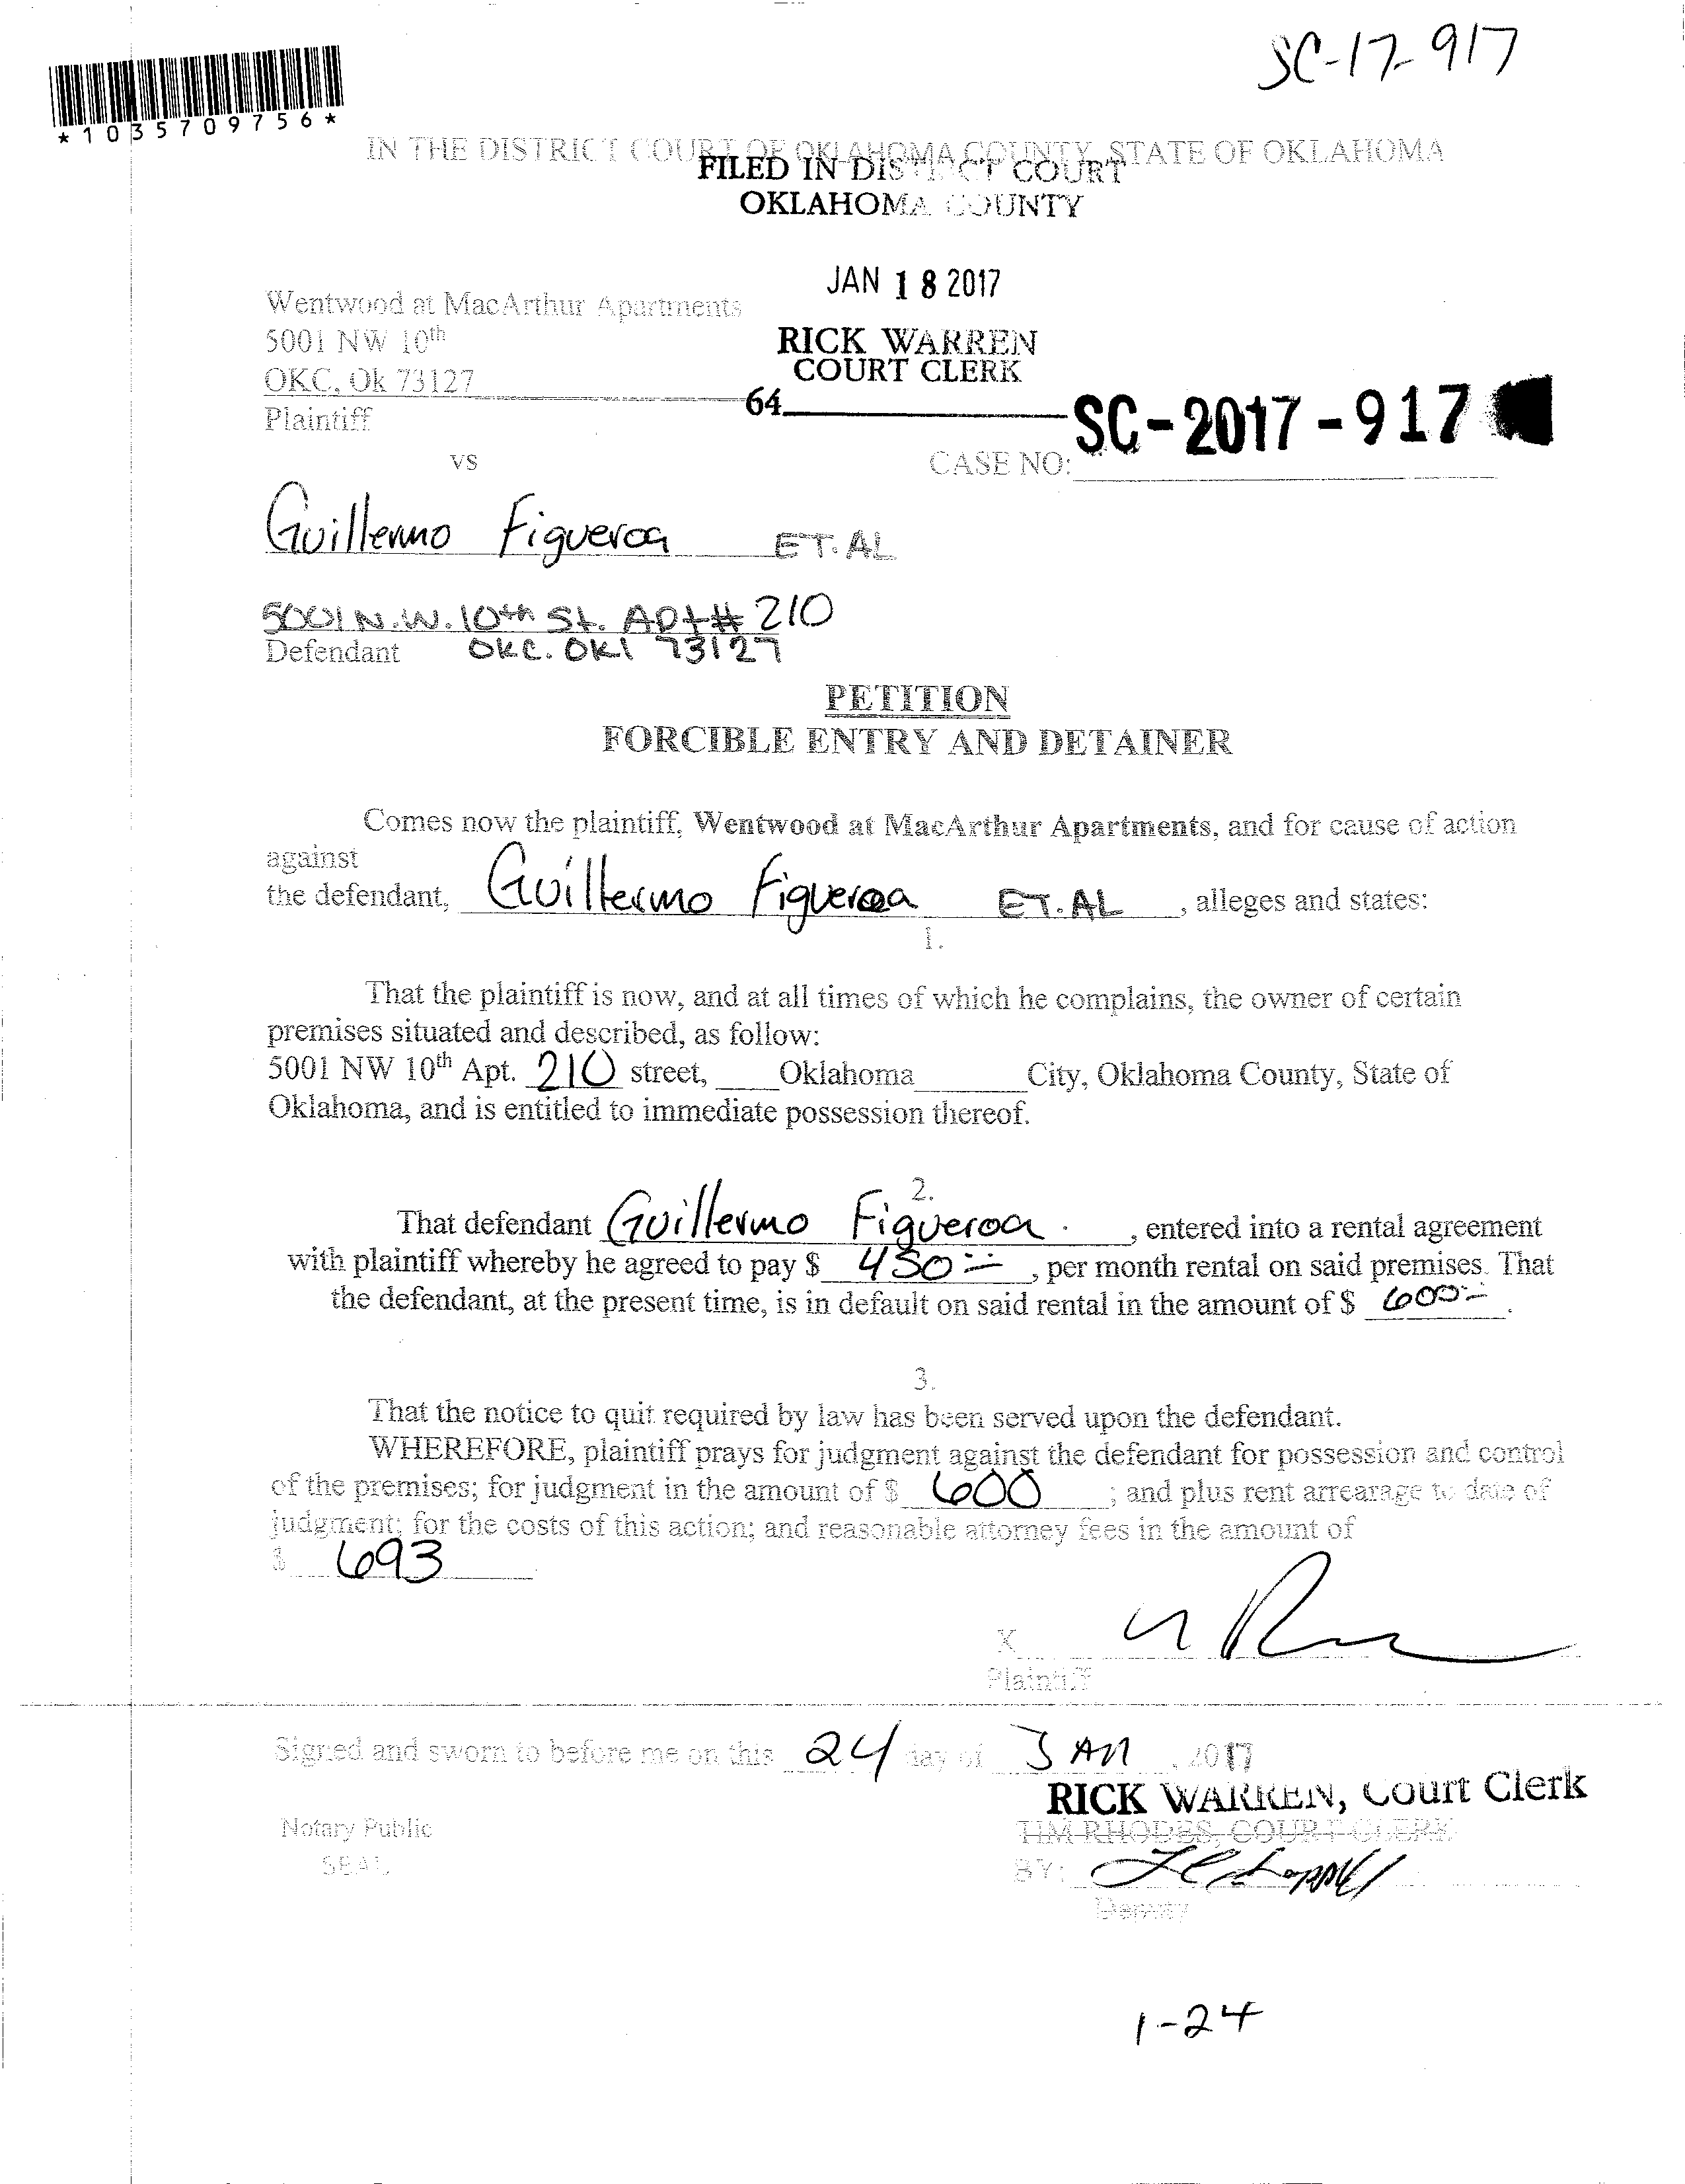 SC-17-917
*1035709756*
IN THE DISTRICT COURT OF OKLAHOMA COUNTY, STATE OF OKLAHOMA
FILED IN DISTRICT COURT
OKLAHOMA COUNTY
JAN 18 2017
Wentwood at MacArthur Apartments
5001 NW 10th
RICK WARREN
COURT CLERK
OKC, Ok 73127
64
Plaintiff
SC-2017-917
vs
CASE NO:
Guillermo Figueroa ET.AL
5001 N.W. 10th St. Apt# 210
Defendant OKC. OKl 73127
PETITION
FORCIBLE ENTRY AND DETAINER
Comes now the plaintiff, Wentwood at MacArthur Apartments, and for cause of action
against
the defendant, Guillermo Figueroa ET.AL, alleges and states:
1.
That the plaintiff is now, and at all times of which he complains, the owner of certain
premises situated and described, as follow:
5001 NW 10th Apt. 210 street, Oklahoma City, Oklahoma County, State of
Oklahoma, and is entitled to immediate possession thereof.
2.
That defendant Guillermo Figueroa, entered into a rental agreement
with plaintiff whereby he agreed to pay $ 450, per month rental on said premises. That
the defendant, at the present time, is in default on said rental in the amount of $ 600.
3.
That the notice to quit required by law has been served upon the defendant.
WHEREFORE, plaintiff prays for judgment against the defendant for possession and control
of the premises; for judgment in the amount of $ 600; and plus rent arrearage to date of
judgment; for the costs of this action; and reasonable attorney fees in the amount of
$ 693
X
Plaintiff
Signed and sworn to before me on this 24 day of JAN, 2017
RICK WARREN, Court Clerk
Notary Public
TIM RHODES, COURT CLERK
SEAL
BY:
Deputy
1-24